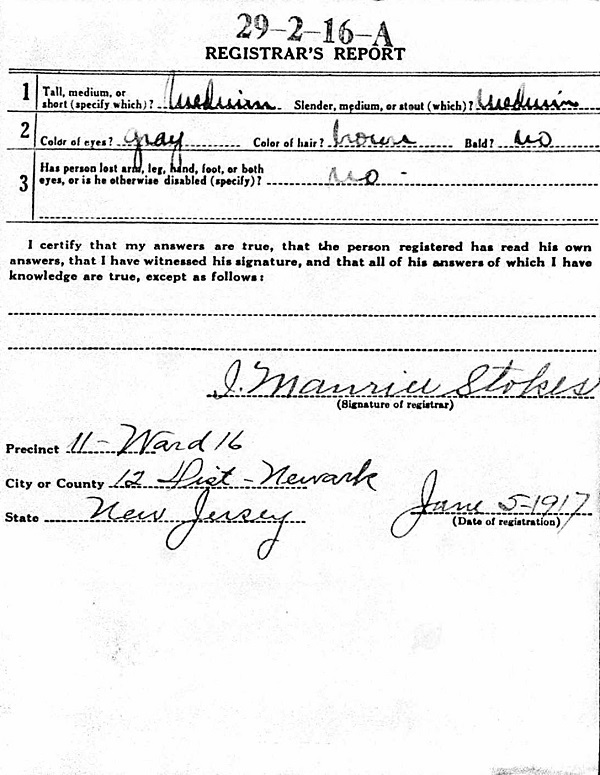 29-2-16-A
REGISTRAR'S REPORT
1 Tall, medium, or short (specify which)? Medium Slender, medium, or stout (which)? Medium
2 Color of eyes? gray Color of hair? brown Bald? no
3 Has person lost arm, leg, hand, foot, or both eyes, or is he otherwise disabled (specify)? no -
I certify that my answers are true, that the person registered has read his own
answers, that I have witnessed his signature, and that all of his answers of which I have
knowledge are true, except as follows:
J. Maurice Stokes
(Signature of registrar)
Precinct 11-Ward 16
City or County 12 Dist - Newark
State New Jersey June 5-1917
(Date of registration)